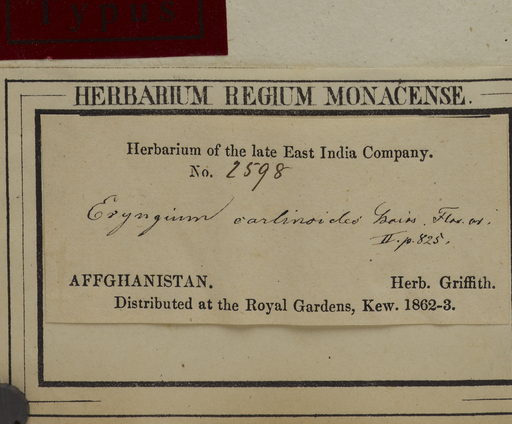 Typus
HERBARIUM REGIUM MONACENSE.
Herbarium of the late East India Company.
No. 2598
Eryngium carlinoides Boiss. Flor. or.
II. p. 825.
AFFGHANISTAN. Herb. Griffith.
Distributed at the Royal Gardens, Kew. 1862-3.